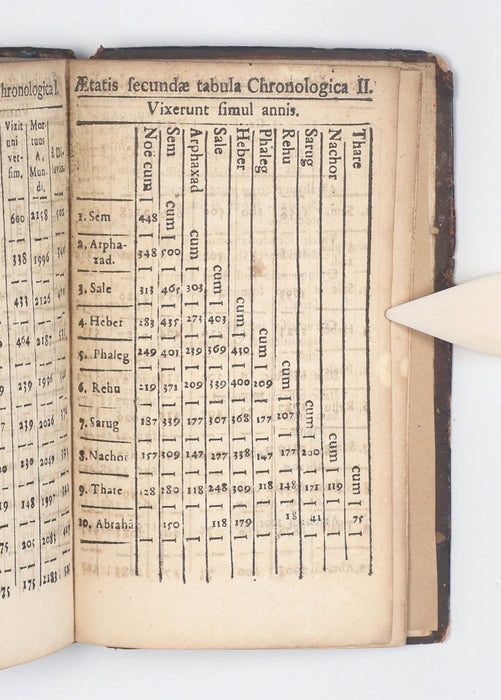 hronologica I.
Vixit Mor-
uni tuus
ver- A.
sim, Mun-
di.
600 2158
338 1996
433 2126
464 2187
239 1996
239 2026
230 2049
148 1997
75 205 2083
75 175 2183
Ætatis ſecundæ tabula Chronologica II.
Vixerunt ſimul annis.
Noë cum Sem Arphaxad Sale Heber Phaleg Rehu Sarug Nachor Thare
1. Sem 448 cum
2. Arpha-
xad. 348 500 cum
3. Sale 313 465 303 cum
4. Heber 283 435 273 403 cum
5. Phaleg 249 401 239 369 430 cum
6. Rehu 219 371 209 339 400 209 cum
7. Sarug 187 339 177 307 368 177 207 cum
8. Nachor 157 309 147 277 338 147 177 200 cum
9. Thare 128 280 118 248 309 118 148 171 119 cum
10. Abrahā 150 118 179 18 41 75